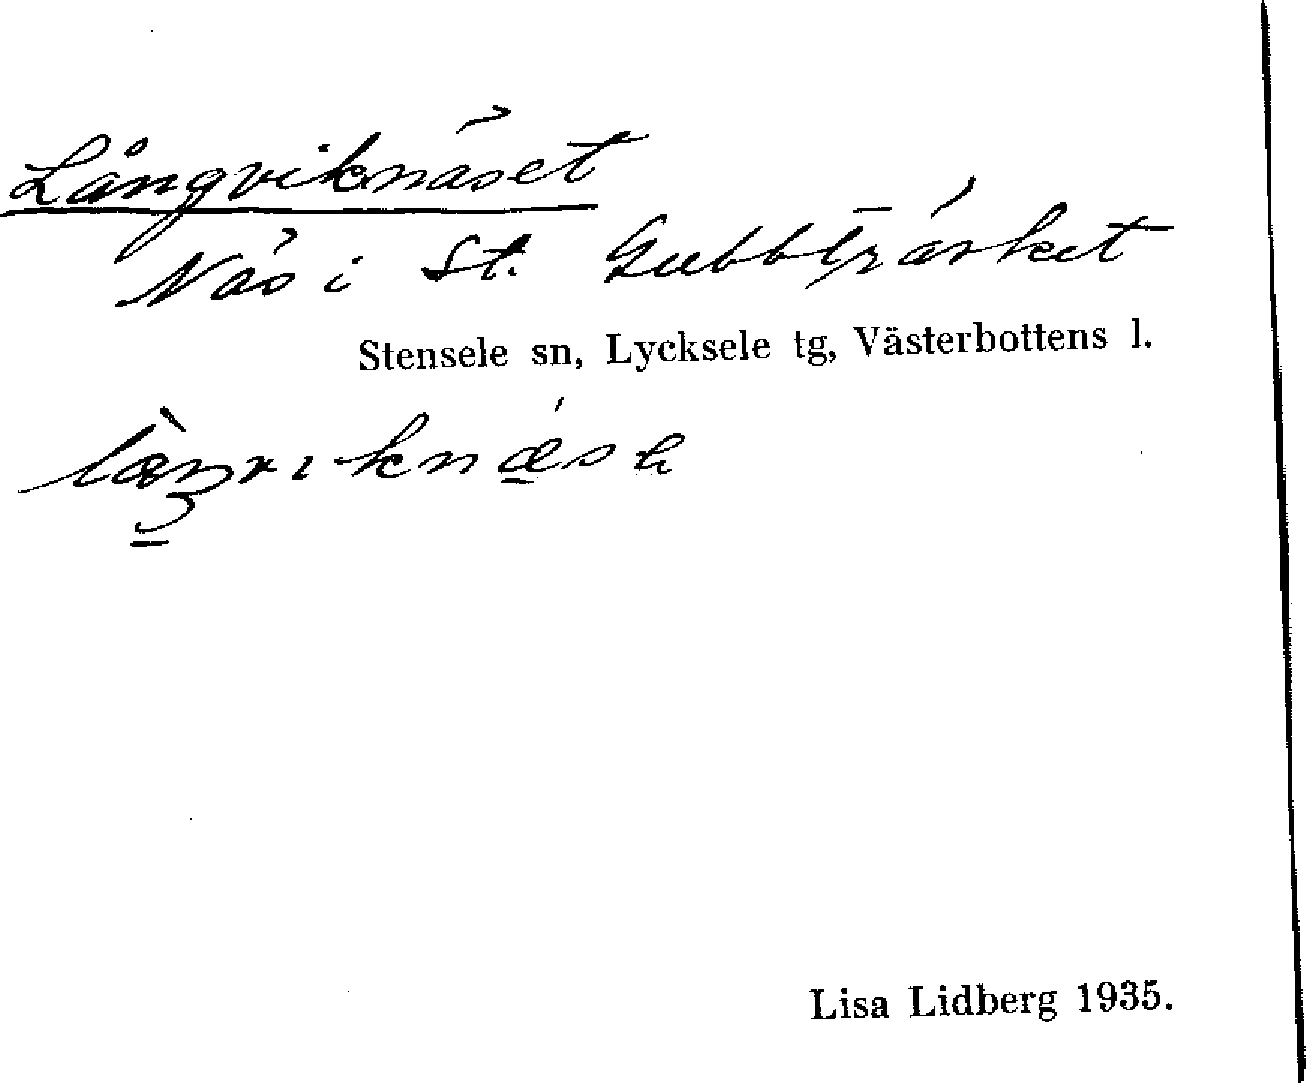 Långviknäset
Näs i St. Gubbträsket
Stensele sn, Lycksele tg, Västerbottens l.
Lisa Lidberg 1935.